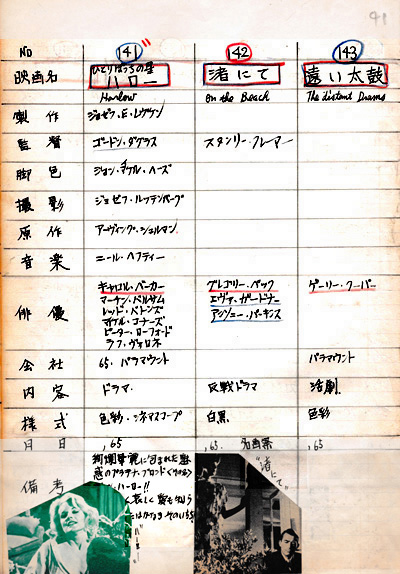 91
NO 141 142 143
映画名 ひとりぼっちの星 ハロー 渚にて 遠い太鼓
Harlow On the Beach The distant Drums
製作 ジョゼフ・E・レヴィン
監督 ゴードン・ダグラス スタンリー・クレーマー
脚色 ジョン・マイケル・ヘーズ
撮影 ジョゼフ・ルッテンバーグ
原作 アーヴィング・シュルマン
音楽 ニール・ヘフティー
俳優 キャロル・ベーカー グレゴリー・ペック ゲーリー・クーパー
マーチン・バルサム エヴァ・ガードナー
レッド・バトンズ アンソニー・パーキンス
マイケル・コナーズ
ピーター・ローフォード
ラフ・ヴァロネ
会社 65. パラマウント パラマウント
内容 ドラマ. 反戦ドラマ 活劇.
様式 色彩・シネマスコープ 白黒 色彩
月日 ,65 ,65. 名画祭 ,65
備考 絢爛華麗に包まれた魅
惑のプラチナ・ブロンド
ハーロー!!
"渚にて"
"ハロー"